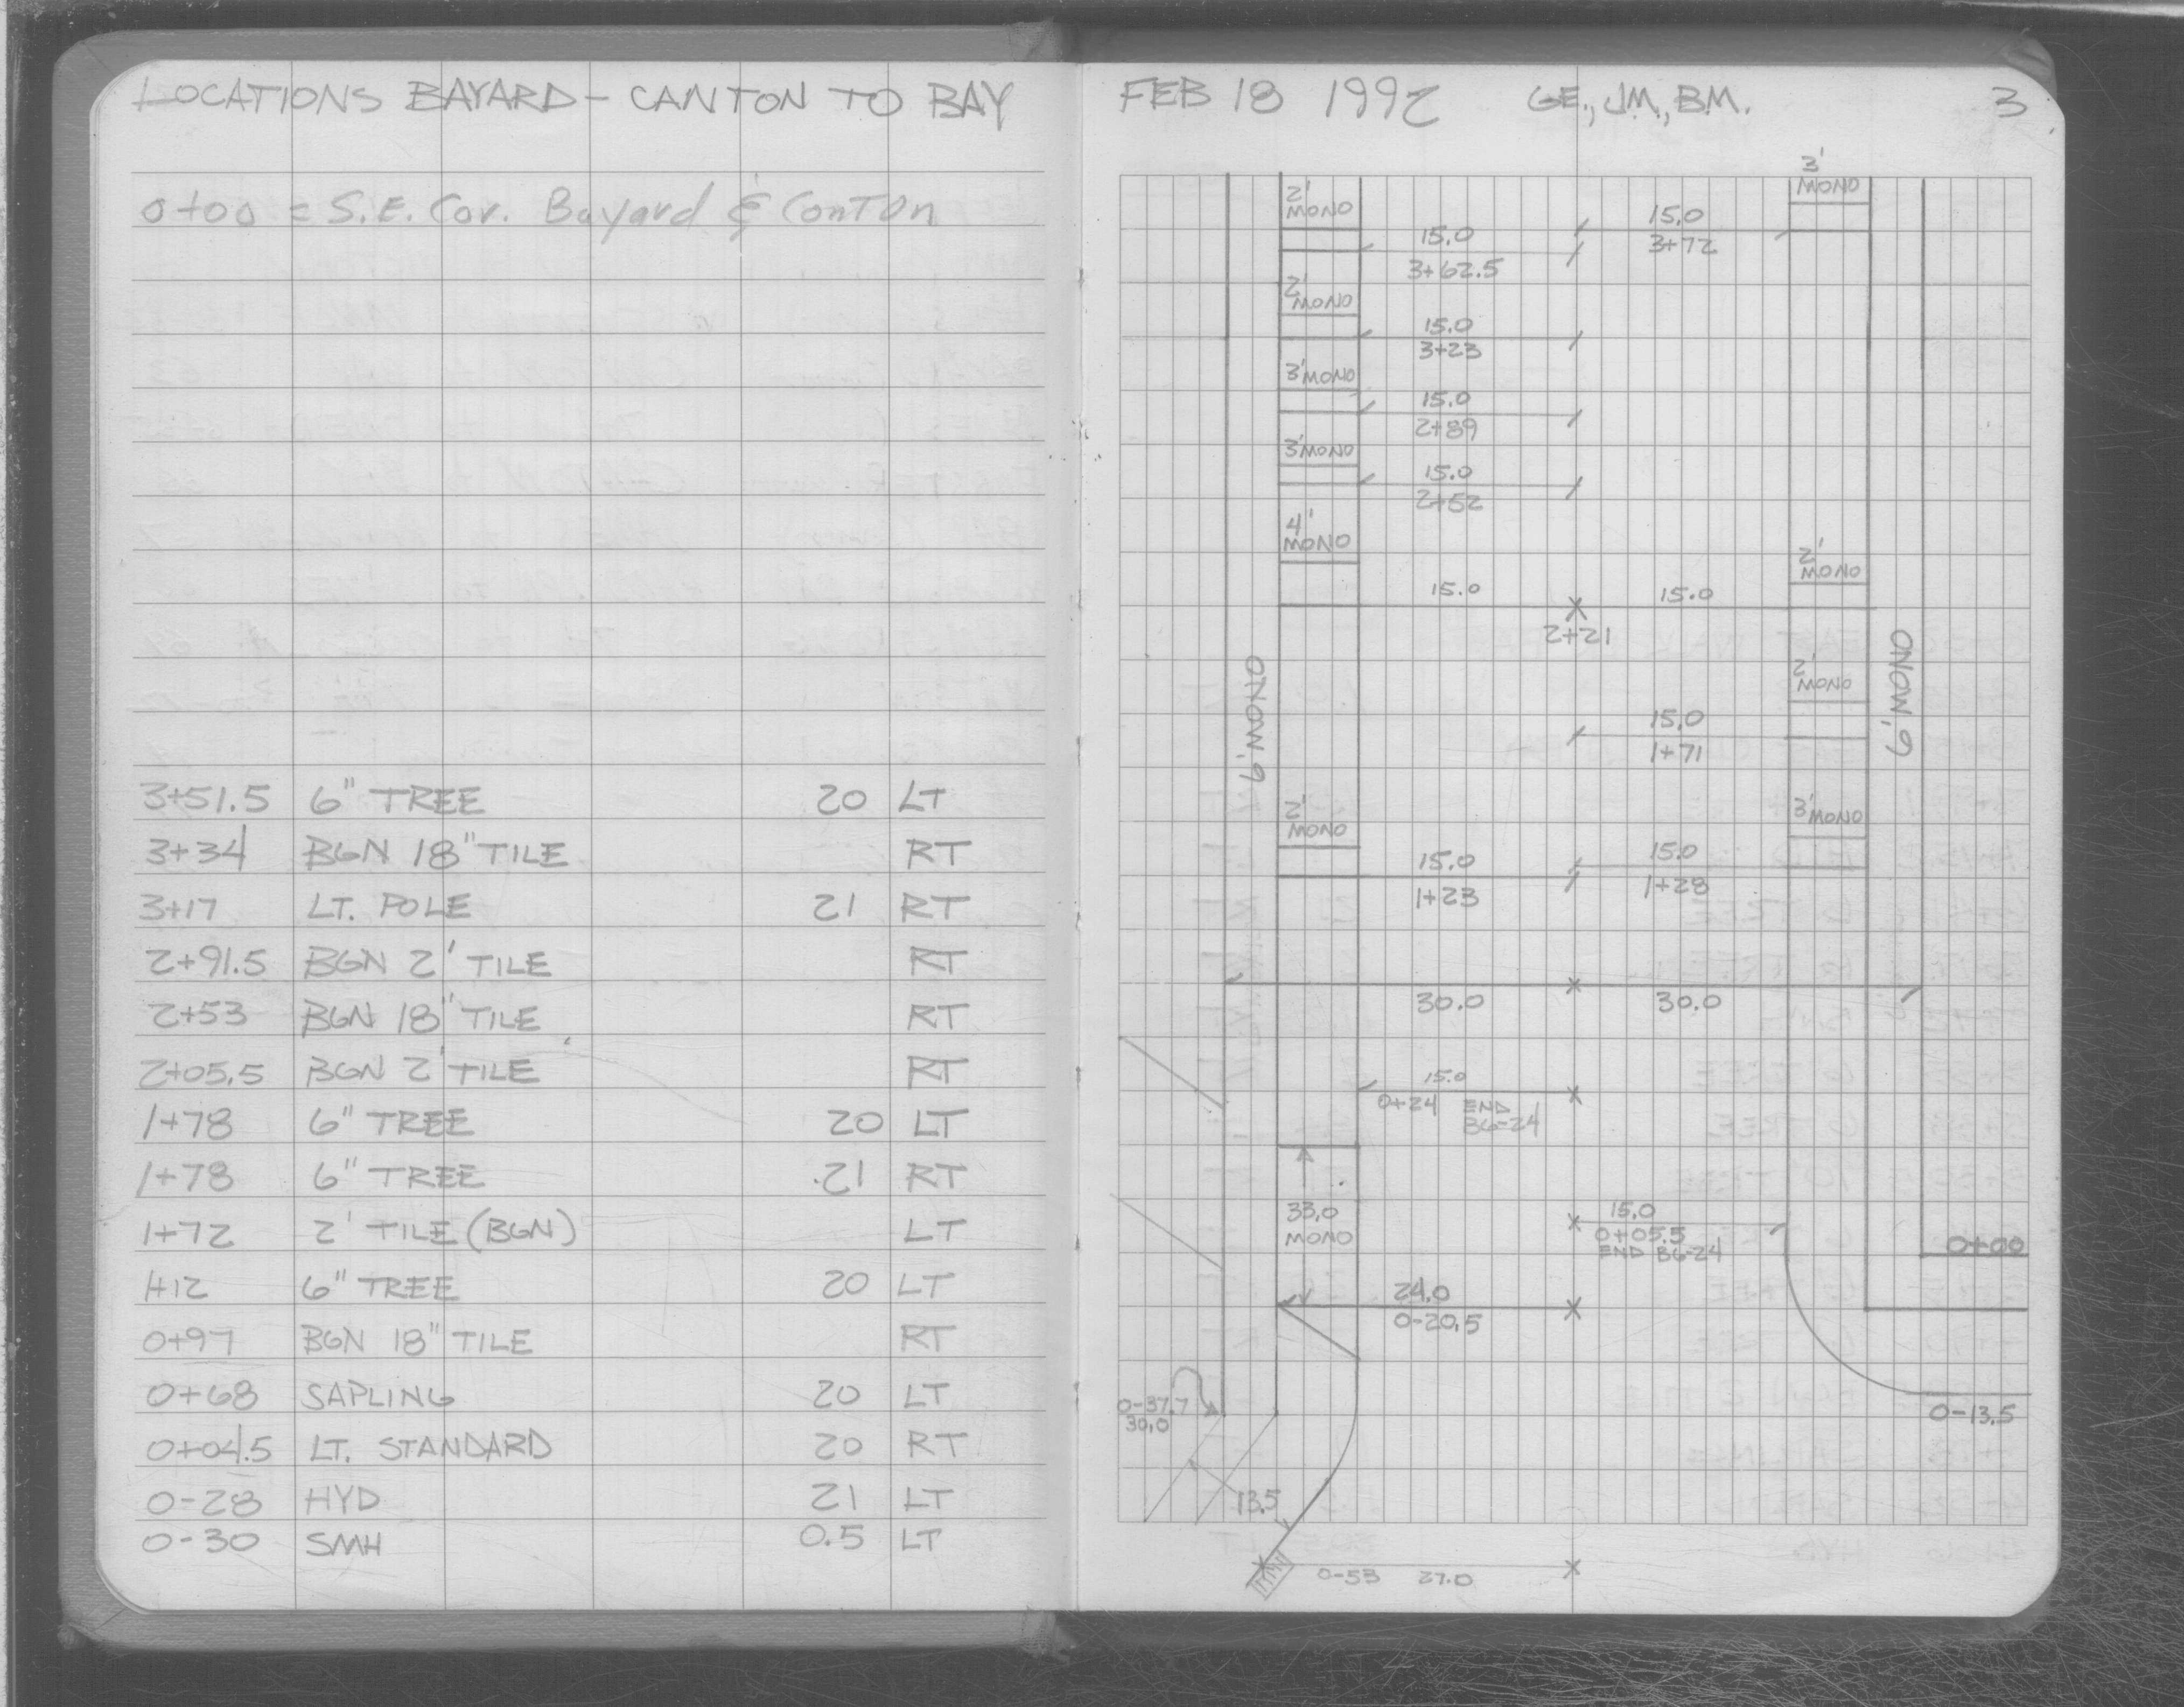 LOCATIONS BAYARD - CANTON TO BAY
0+00 = S.E. Cor. Bayard & Canton
3+51.5 6" TREE 20 LT
3+34 BGN 18" TILE RT
3+17 LT. POLE 21 RT
2+91.5 BGN 2' TILE RT
2+53 BGN 18" TILE RT
2+05.5 BGN 2' TILE RT
1+78 6" TREE 20 LT
1+78 6" TREE 21 RT
1+72 2' TILE (BGN) LT
1+12 6" TREE 20 LT
0+97 BGN 18" TILE RT
0+68 SAPLING 20 LT
0+04.5 LT. STANDARD 20 RT
0-28 HYD 21 LT
0-30 SMH 0.5 LT
FEB 18 1992 GE., J.M., B.M. 3
3'
MONO
2'
MONO
15.0
3+72
15.0
3+62.5
2'
MONO
15.0
3+23
3' MONO
15.0
2+89
3' MONO
15.0
2+52
4'
MONO
2'
MONO
15.0 15.0
2+21
6' MONO
6' MONO
2'
MONO
15.0
1+71
2'
MONO
3' MONO
15.0
1+23
15.0
1+28
30.0 30.0
15.0
0+24 END
B6-24
33.0
MONO
15.0
0+05.5
END B6-24
0+00
24.0
0-20.5
0-37.7
30.0
0-13.5
13.5
0-53 27.0